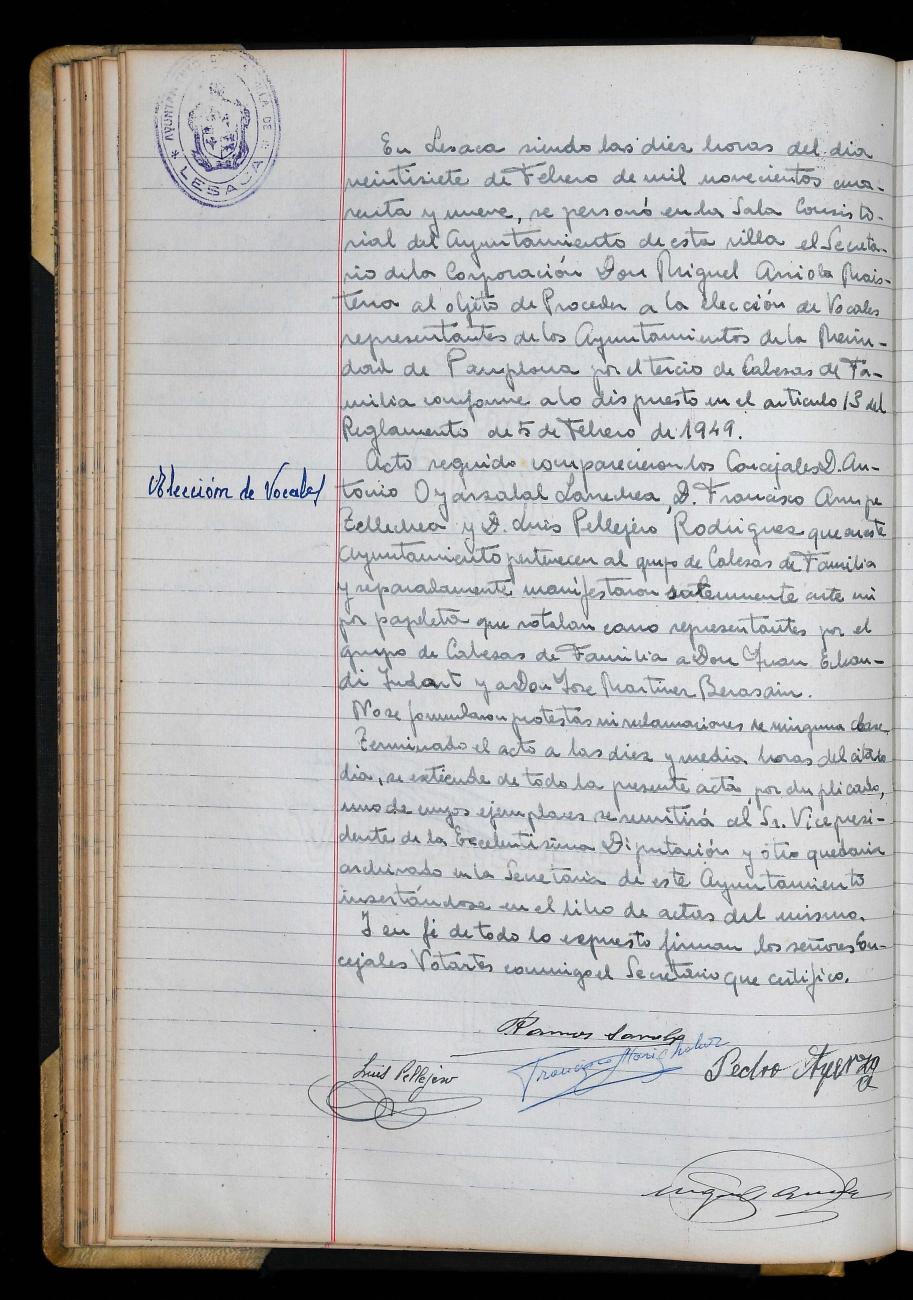 AYUNTAMIENTO DE LA VILLA DE
* LESACA *
En Lesaca siendo las diez horas del dia
veintisiete de Febrero de mil novecientos cua-
renta y nueve, se personó en la Sala Consisto-
rial del Ayuntamiento de esta villa el Secreta-
rio de la Corporación Don Miguel Arriola Mais-
terra al objeto de Proceder a la elección de Vocales
representantes de los Ayuntamientos de la Merin-
dad de Pamplona por el tercio de Cabezas de Fa-
milia conforme a lo dispuesto en el articulo 13 del
Reglamento de 5 de Febrero de 1949.
Elección de Vocales
Acto seguido comparecieron los Concejales D. An-
tonio Oyarzabal Lanechea, D. Francisco
Tellechea y D. Luis Pellejero Rodriguez que en este
Ayuntamiento pertenecen al grupo de Cabezas de Familia
y separadamente manifestaron ante mi
por papeleta que votaban como representantes por el
grupo de Cabezas de Familia a Don Juan Echan-
di Indart y a Don Jose Martinez Berasain.
No se formularon protestas ni reclamaciones de ninguna clase.
Terminado el acto a las diez y media horas del citado
dia, se extiende de todo la presente acta, por duplicado,
uno de cuyos ejemplares se remitirá al Sr. Vicepresi-
dente de la Excelentisima Diputación y otro quedará
archivado en la Secretaria de este Ayuntamiento
insertándose en el libro de actas del mismo.
Y en fé de todo lo expuesto firman los señores Con-
cejales Votantes conmigo el Secretario que certifico.
Ramos
Luis Pellejero
Francisco
Pedro
Miguel Arriola